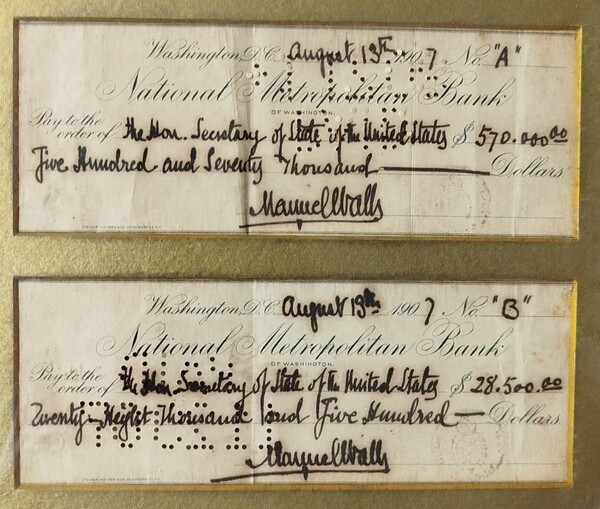 Washington, D.C. August 13th 1907 No. "A"
National Metropolitan Bank
OF WASHINGTON.
Pay to the order of the Hon. Secretary of State of the United States $ 570.000 00
Five Hundred and Seventy Thousand Dollars
Manuel Walls
Washington, D.C. August 13th 1907 No. "B"
National Metropolitan Bank
OF WASHINGTON.
Pay to the order of the Hon. Secretary of State of the United States $ 28.500.00
Twenty-Height Thousand and Five Hundred — Dollars
Manuel Walls